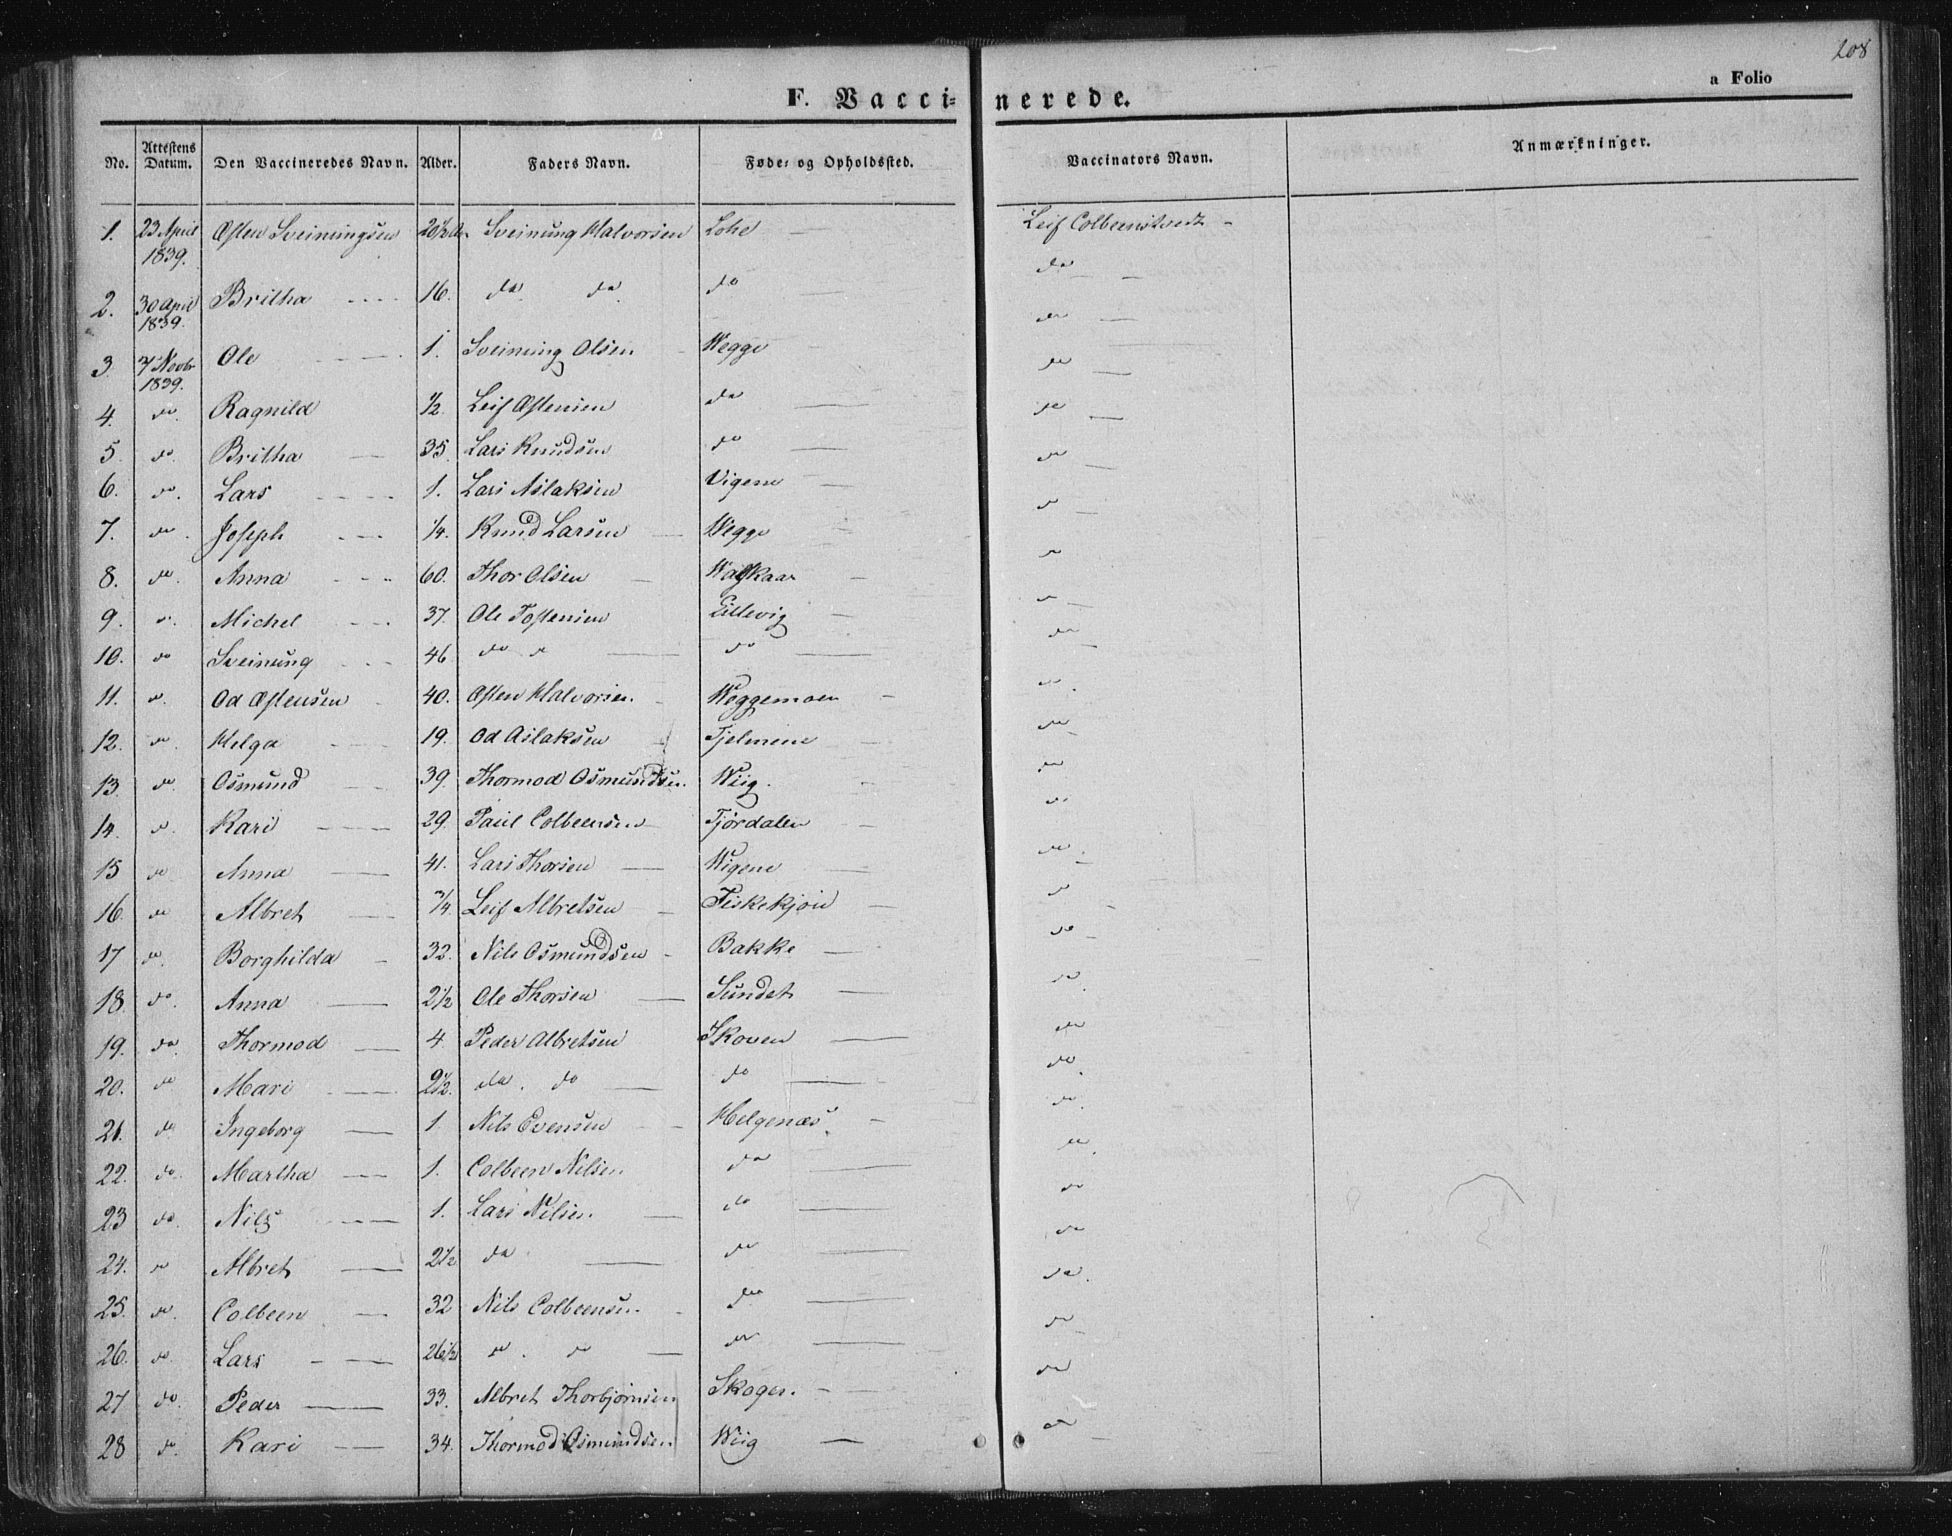 208
a Folio
F. Vaccinerede.
No. Attestens Datum. Den Vaccineredes Navn. Alder. Faders Navn. Føde- og Opholdssted. Vaccinators Navn. Anmærkninger.
1. 23 April 1839. Østen Sveinungsen 20½ Sveinung Halvorsen Lohe Leif Colbeenstvedt
2. 30 April 1839. Britha 16. do do do do
3. 7 Novbr 1839. Ole 1. Sveinung Olsen Wegge do
4. do Ragnild ½. Leif Østensen do do
5. do Britha 35. Lars Knudsen do do
6. do. Lars 1. Lars Aslaksen Vigene do
7. do. Joseph ¼. Knud Larsen Wegge do
8. do. Anna 60. Thor Olsen do
9. do. Michel 37. Ole Tostensen Lillevig do
10. do Sveinung 46 do do do do
11. do. Od Østensen 40. Østen Halvorsen. Weggemoen do
12. do. Helga 19. Od Aslaksen Tjelmene do
13. do. Osmund 39. Thormod Osmundsen. Wiig. do
14. do. Kari 29. Paul Colbeensen Tjørdalen do
15 do Anna 41. Lars Thorsen Wigene do
16. do Albret ¾. Leif Albretsen Fiskekjøn do
17 do. Borghilda 32. Nils Osmundsen Bakke do
18. do. Anna 2½ Ole Thorsen Sundet do
19. do. Thormod 4 Peder Albretsen Skoven do
20. do Mari 2½. do. do do do
21. do Ingeborg 1 Nils Evensen Helgenæs. do
22. do Martha 1. Colbeen Nilsen do do
23 do. Nils 1. Lars Nilsen. do do
24. do Albret 2½ do do do
25. do. Colbeen 32 Nils Colbeensen. do do
26. do Lars 26½ do. do do do
27 do. Peder 33. Albret Thorbjørnsen Skogen. do
28 do. Kari 34. Thormod Osmundsen Wiig do